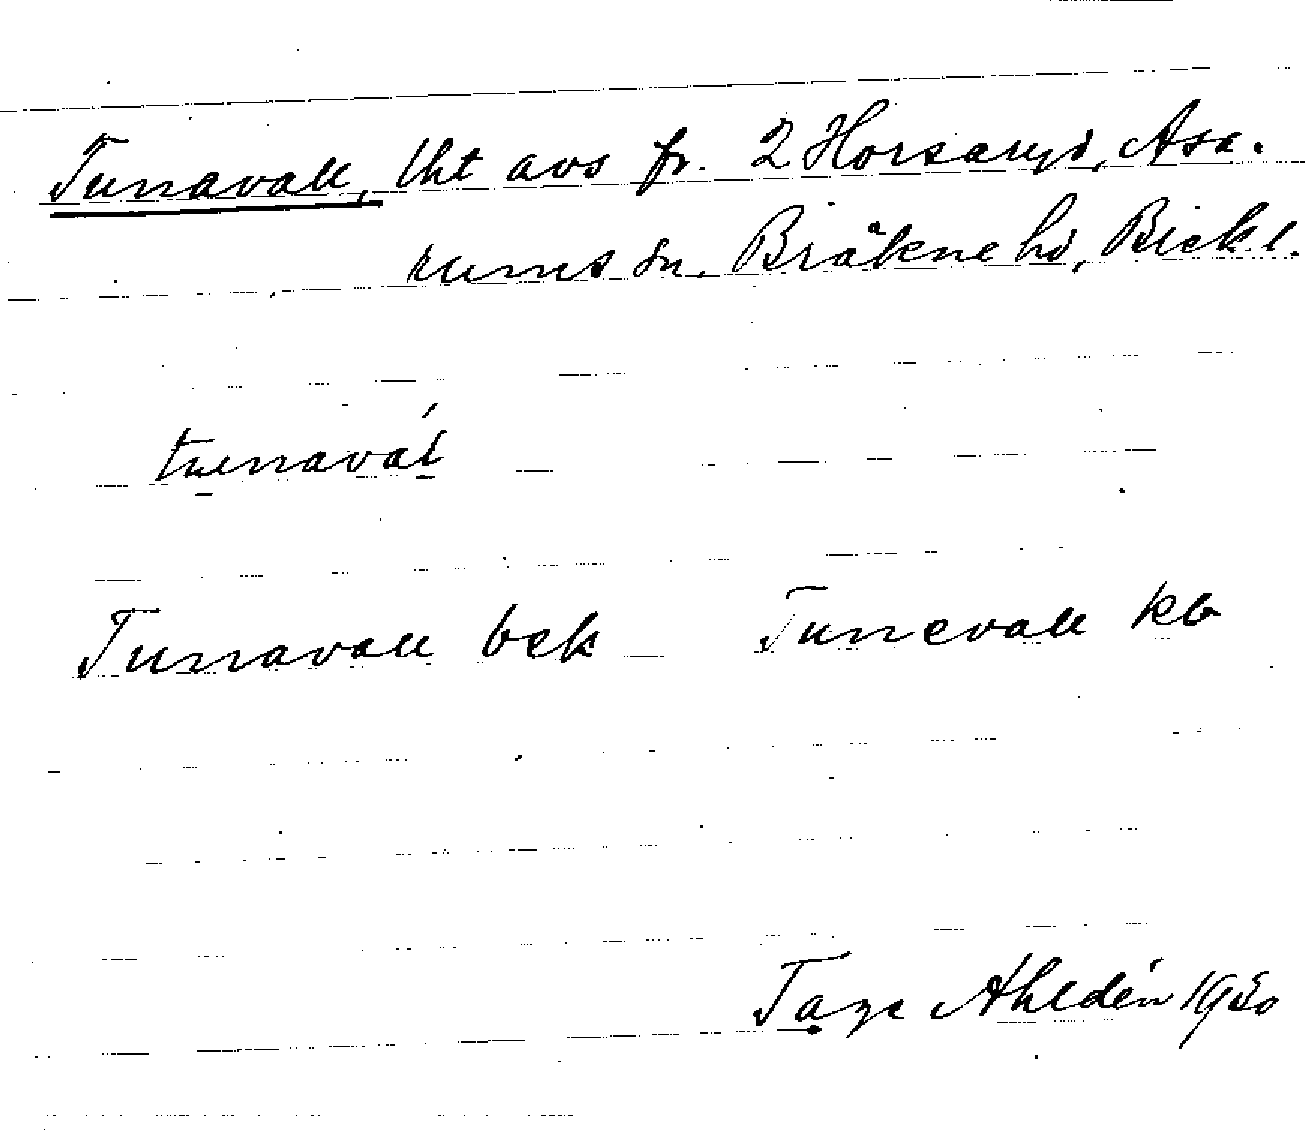 Tunnavall, lht avs fr. 2 Horsaryd, Asa-
rums sn. Bräkne hd, Blek l.
tunnaval
Tunnavall bek Tunnevall kb
Tage Ahldén 1930